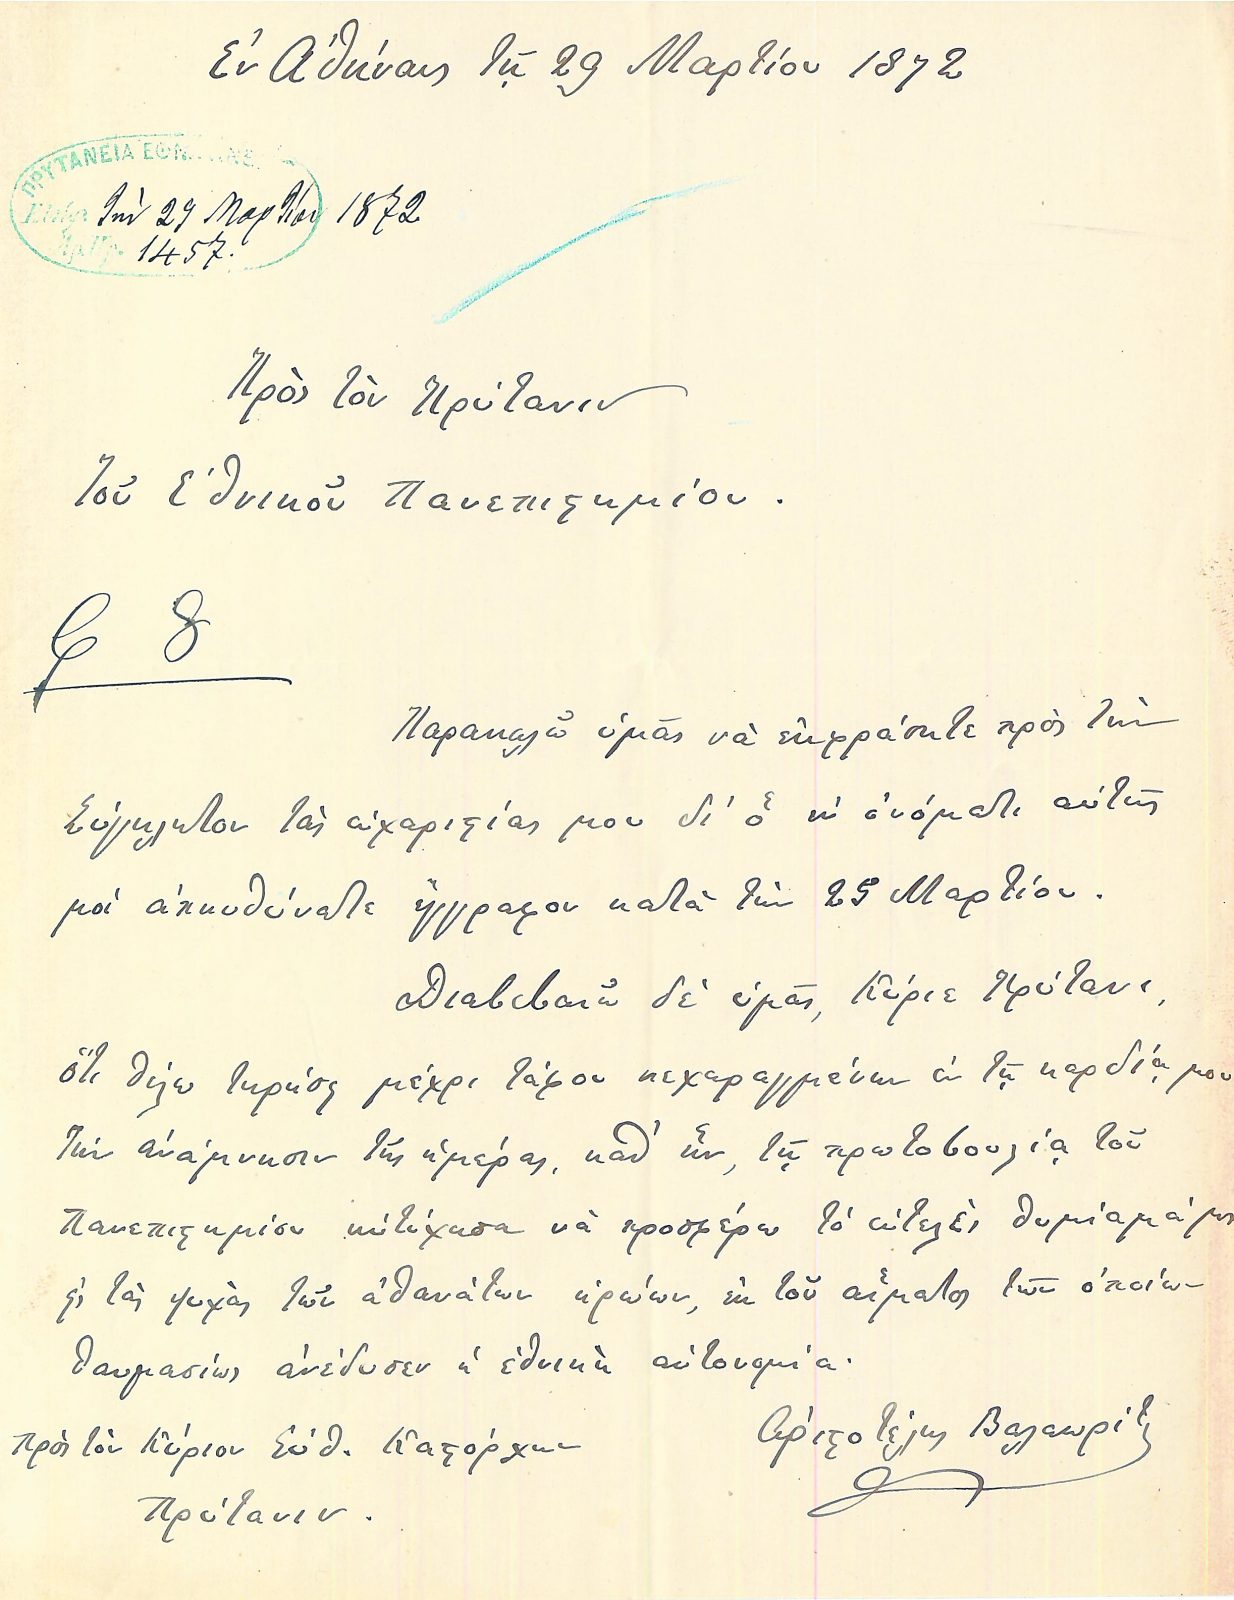 Ἐν Ἀθήναις τῇ 29 Μαρτίου 1872
ΠΡΥΤΑΝΕΙΑ
τὴν 29 Μαρτίου 1872
1457.
Πρὸς τὸν Πρύτανιν
Τοῦ Ἐθνικοῦ Πανεπιστημίου.
Φ 8
Παρακαλῶ ὑμᾶς νὰ ἐκφράσητε πρὸς τὴν
Σύγκλητον τὰς εὐχαριστίας μου δι' ὃ ἐν ὀνόματι αὐτῆς
μοί ἀπηυθύνατε ἔγγραφον κατὰ τὴν 25 Μαρτίου.
Διαβεβαιῶ δὲ ὑμᾶς, Κύριε Πρύτανι,
ὅτι θέλω τηρήσει μέχρι τάφου κεχαραγμένην ἐν τῇ καρδίᾳ μου
τὴν ἀνάμνησιν τῆς ἡμέρας, καθ' ἣν, τῇ πρωτοβουλίᾳ τοῦ
Πανεπιστημίου ηὐτύχησα νὰ προσφέρω τὸ εὐτελὲς θυμίαμά μου
εἰς τὰς ψυχὰς τῶν ἀθανάτων ἡρώων, ἐκ τοῦ αἵματος τῶν ὁποίων
θαυμασίως ἀνέδυσεν ἡ ἐθνικὴ αὐτονομία.
Ἀριστοτέλης Βαλαωρίτης
Πρὸς τὸν Κύριον Εὐθ. Καστόρχην
Πρύτανιν.